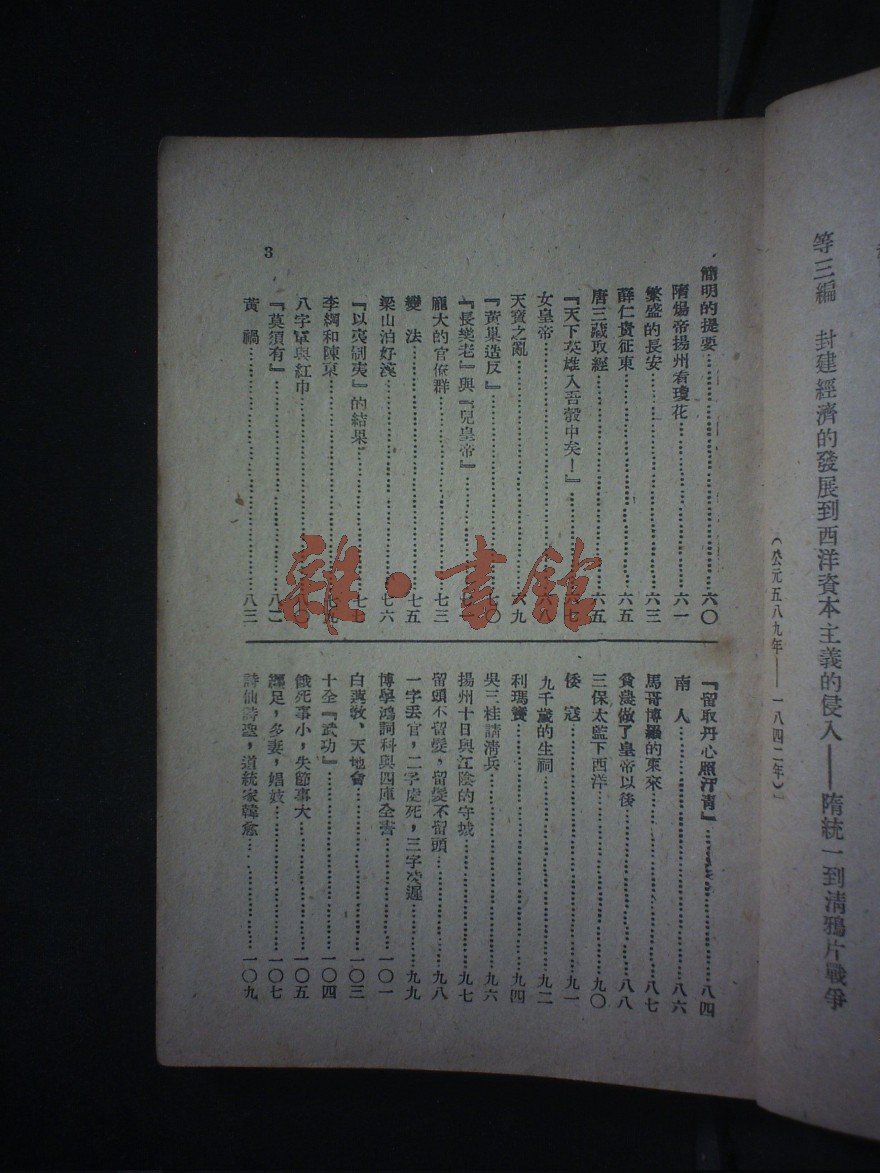 等三編　封建經濟的發展到西洋資本主義的侵入——隋統一到淸鴉片戰爭
（公元五八九年——一八四二年）
簡明的提要…………六〇
隋煬帝揚州看瓊花…………六一
繁盛的長安…………六三
薛仁貴征東…………六五
唐三藏取經…………六五
『天下英雄入吾彀中矣！』…………六七
女皇帝…………六八
天寶之亂…………六九
『黃巢造反』…………七〇
『長樂老』與『兒皇帝』…………
龐大的官俸群…………七三
變　法…………七五
梁山泊好漢…………七六
『以夷制夷』的結果…………七七
李綱和陳東…………七九
八字軍與紅巾…………八〇
『莫須有』…………八二
黃　禍…………八三
『留取丹心照汗靑』…………八四
南　人…………八六
馬哥博羅的東來…………八七
貧農做了皇帝以後…………八八
三保太監下西洋…………九〇
倭　寇…………九一
九千歲的生祠…………九二
利瑪竇…………九四
吳三桂請淸兵…………九六
揚州十日與江陰的守城…………九七
留頭不留髮，留髮不留頭…………九八
一字丟官，二字處死，三字凌遲…………九九
博學鴻詞科與四庫全書…………一〇一
白蓮敎、天地會…………一〇三
十全『武功』…………一〇四
餓死事小，失節事大…………一〇五
纏足，多妻，娼妓…………一〇七
詩仙詩聖，道統家韓愈…………一〇九
3
雜·書館